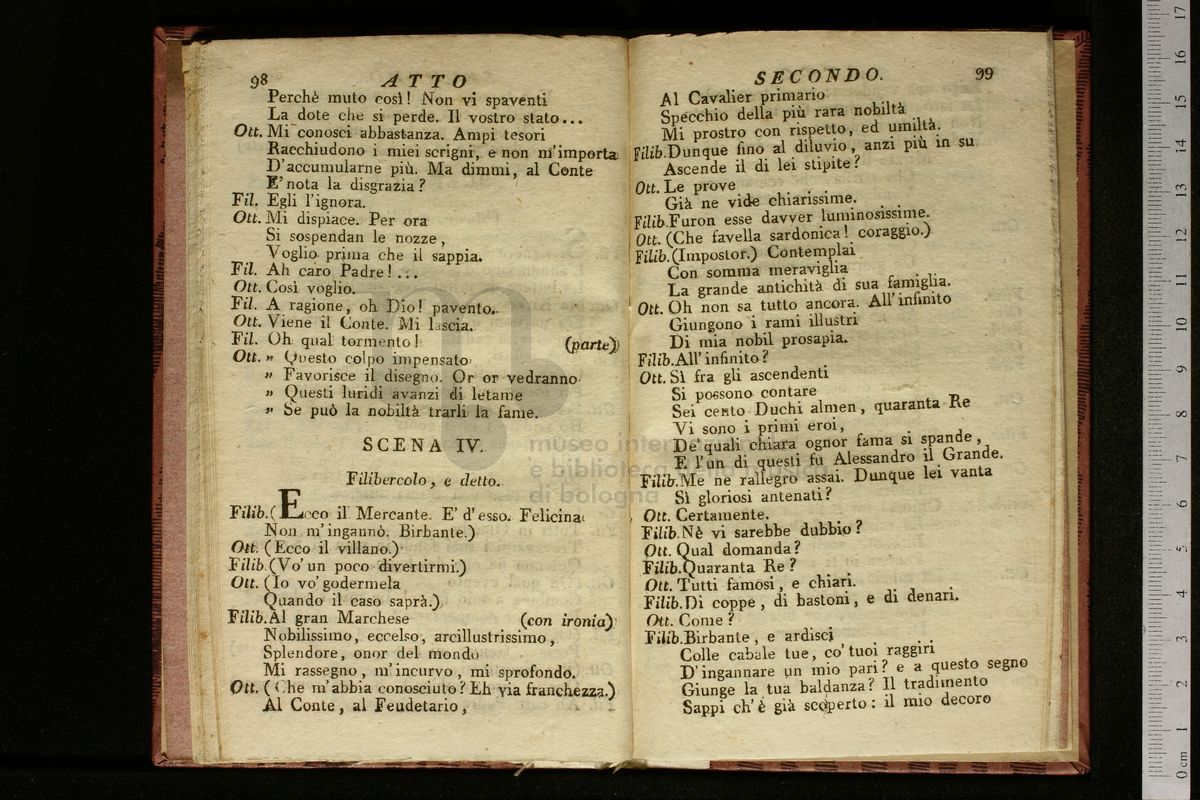 98 ATTO
Perchè muto così! Non vi spaventi
La dote che si perde. Il vostro stato...
Ott. Mi conosci abbastanza. Ampi tesori
Racchiudono i miei scrigni, e non m'importa
D'accumularne più. Ma dimmi, al Conte
E' nota la disgrazia?
Fil. Egli l'ignora.
Ott. Mi dispiace. Per ora
Si sospendan le nozze,
Voglio prima che il sappia.
Fil. Ah caro Padre!...
Ott. Così voglio.
Fil. A ragione, oh Dio! pavento.
Ott. Viene il Conte. Mi lascia.
Fil. Oh qual tormento! (parte)
Ott. " Questo colpo impensato
" Favorisce il disegno. Or or vedranno
" Questi luridi avanzi di letame
" Se può la nobiltà trarli la fame.
SCENA IV.
Filibercolo, e detto.
Filib. (Ecco il Mercante. E' d'esso. Felicina
Non m'ingannò. Birbante.)
Ott. (Ecco il villano.)
Filib. (Vo' un poco divertirmi.)
Ott. (Io vo' godermela
Quando il caso saprà.)
Filib. Al gran Marchese (con ironia)
Nobilissimo, eccelso, arcillustrissimo,
Splendore, onor del mondo
Mi rassegno, m'incurvo, mi sprofondo.
Ott. (Che m'abbia conosciuto? Eh via franchezza.)
Al Conte, al Feudetario,
SECONDO. 99
Al Cavalier primario
Specchio della più rara nobiltà
Mi prostro con rispetto, ed umiltà.
Filib. Dunque fino al diluvio, anzi più in su
Ascende il di lei stipite?
Ott. Le prove
Già ne vide chiarissime.
Filib. Furon esse davver luminosissime.
Ott. (Che favella sardonica! coraggio.)
Filib. (Impostor.) Contemplai
Con somma meraviglia
La grande antichità di sua famiglia.
Ott. Oh non sa tutto ancora. All'infinito
Giungono i rami illustri
Di mia nobil prosapia.
Filib. All'infinito?
Ott. Sì fra gli ascendenti
Si possono contare
Sei cento Duchi almen, quaranta Re
Vi sono i primi eroi,
De' quali chiara ognor fama si spande,
E l'un di questi fu Alessandro il Grande.
Filib. Me ne rallegro assai. Dunque lei vanta
Sì gloriosi antenati?
Ott. Certamente.
Filib. Nè vi sarebbe dubbio?
Ott. Qual domanda?
Filib. Quaranta Re?
Ott. Tutti famosi, e chiari.
Filib. Di coppe, di bastoni, e di denari.
Ott. Come?
Filib. Birbante, e ardisci
Colle cabale tue, co' tuoi raggiri
D'ingannare un mio pari? e a questo segno
Giunge la tua baldanza? Il tradimento
Sappi ch'è già scoperto: il mio decoro
museo internazionale
e biblioteca della musica
di bologna
0 cm 1 2 3 4 5 6 7 8 9 10 11 12 13 14 15 16 17